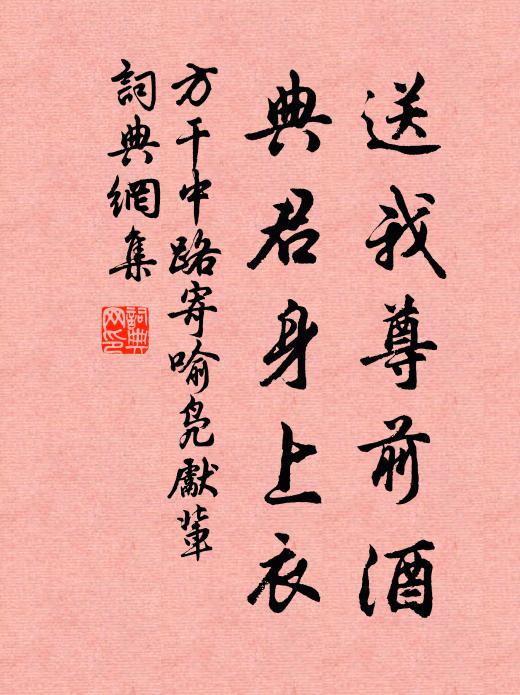 送我尊前酒
典君身上衣
方干中路寄喻凫獻輩
詞典網集
詞典网印